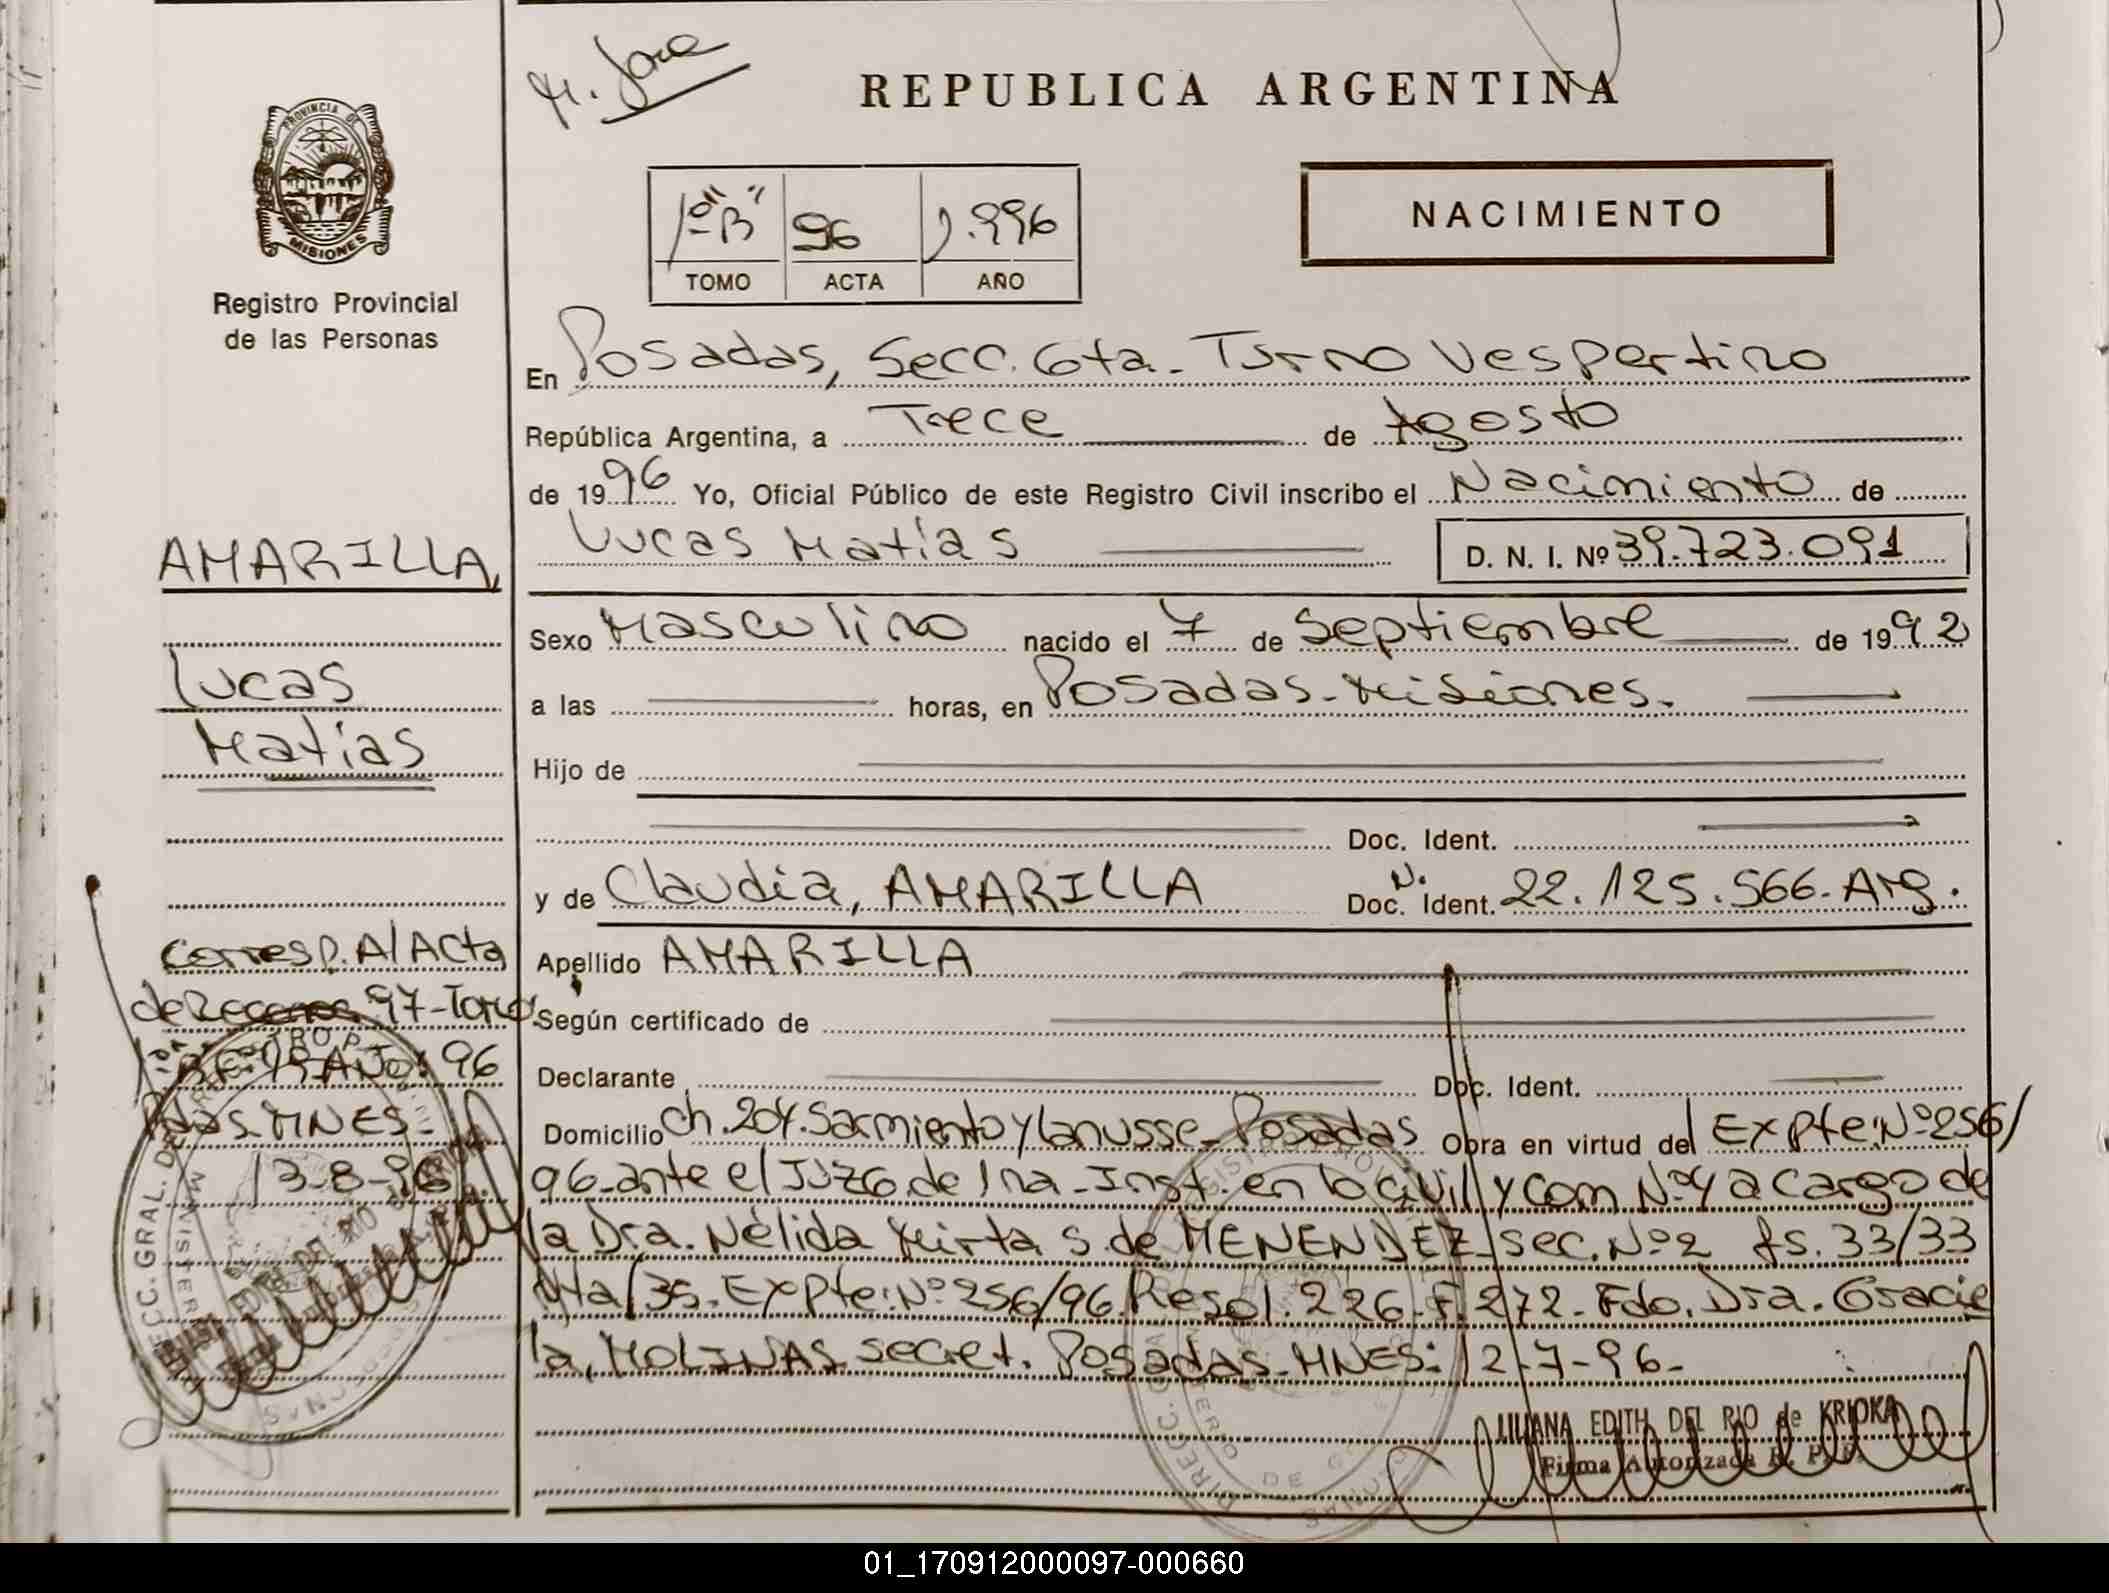 REPUBLICA ARGENTINA
PROVINCIA DE
MISIONES
Registro Provincial
de las Personas
1º "B" 96 1.996
TOMO ACTA AÑO
NACIMIENTO
En Posadas, Secc. 6ta. Turno Vespertino
República Argentina, a Trece de Agosto
de 1996 Yo, Oficial Público de este Registro Civil inscribo el Nacimiento de
Lucas Matías D. N. I. Nº 39.723.091
Sexo Masculino nacido el 7 de Septiembre de 1992
a las horas, en Posadas-Misiones.
Hijo de
Doc. Ident.
y de Claudia, AMARILLA Doc. N. Ident. 22.125.566. Arg.
Apellido AMARILLA
Según certificado de
Declarante Doc. Ident.
Domicilio Ch. 204. Sarmiento y Lanusse - Posadas Obra en virtud del Expte: Nº 256/
96-ante el Juzg de 1ra - Inst. en lo Civil y Com Nº 4 a cargo de
la Dra. Nélida Mirta S. de MENENDEZ sec. Nº 2 fs. 33/33
vta/35. Expte: Nº 256/96. Resol. 226-F. 272-Fdo. Dra. Gracie
la, MOLINAS secret. Posadas-MNES: 12-7-96-
LILIANA EDITH DEL RIO de KRIOKA
Firma Autorizada R. P. P.
AMARILLA,
Lucas
Matías
Corresp. A/ Acta
de 97-Tomo
96
Pdas. MNES-
13-8-96
DIRECC. GRAL. DEL
MINISTERIO
01_170912000097-000660